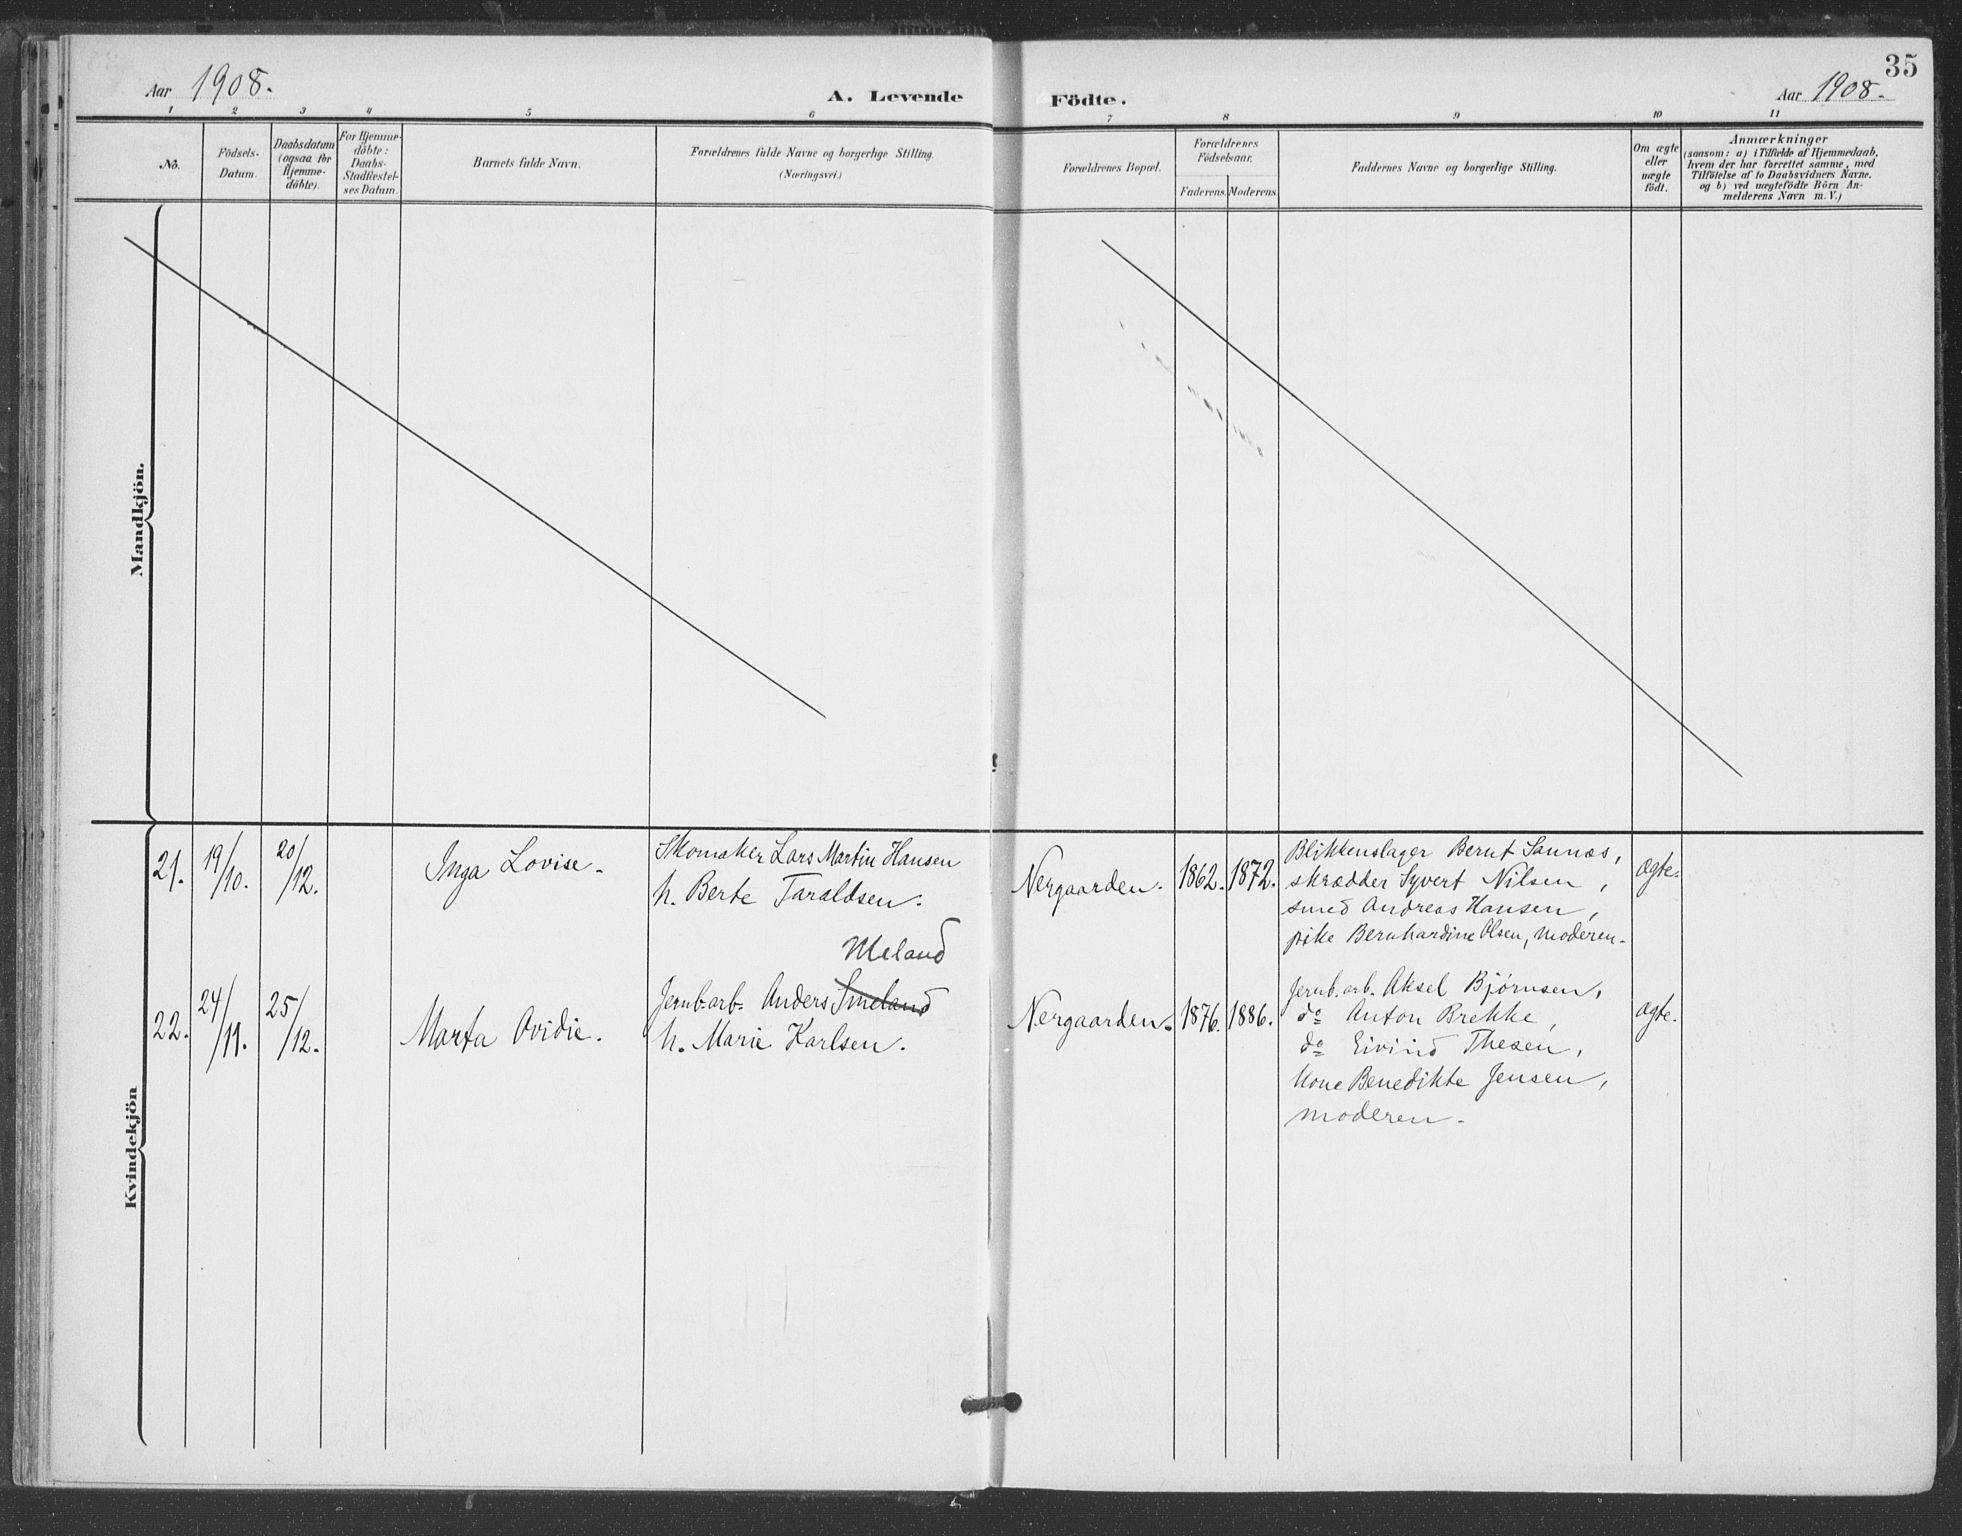 35
Aar 1908.
A. Levende Födte.
Aar 1908.
1 2 3 4 5 6 7 8 9 10 11
No.
Födsels-
Datum.
Daabsdatum
(ogsaa for
Hjemme-
döbte).
For Hjemme-
döbte:
Daabs-
Stadfæstel-
ses Datum.
Barnets fulde Navn.
Forældrenes fulde Navne og borgerlige Stilling.
(Næringsvei.)
Forældrenes Bopæl.
Forældrenes
Födselsaar.
Faderens. Moderens.
Faddernes Navne og borgerlige Stilling.
Om ægte
eller
uægte
födt.
Anmærkninger
(saasom: a) i Tilfælde af Hjemmedaab,
hvem der har forrettet samme, med
Tilföielse af to Daabsvidners Navne.
og b) ved uægtefödte Börn An-
melderens Navn m. V.)
Mandkjön.
Kvindekjön
21. 19/10. 20/12. Inga Lovise.
Skomaker Lars Martin Hansen
h. Berte Taraldsen.
Nergaarden. 1862. 1872.
Blikkenslager Bernt Sannæs,
skrædder Syvert Nilsen,
smed Andreas Hansen,
pike Bernhardine Olsen, moderen.
ægte.
22. 24/11. 25/12. Marta Ovidie.
Meland
Jernb.arb. Anders Smeland
h. Marie Karlsen.
Nergaarden. 1876. 1886.
Jernb.arb. Aksel Bjørnsen,
do Anton Brekke,
do Eivind Thesen,
kone Benedikte Jensen,
moderen.
ægte.